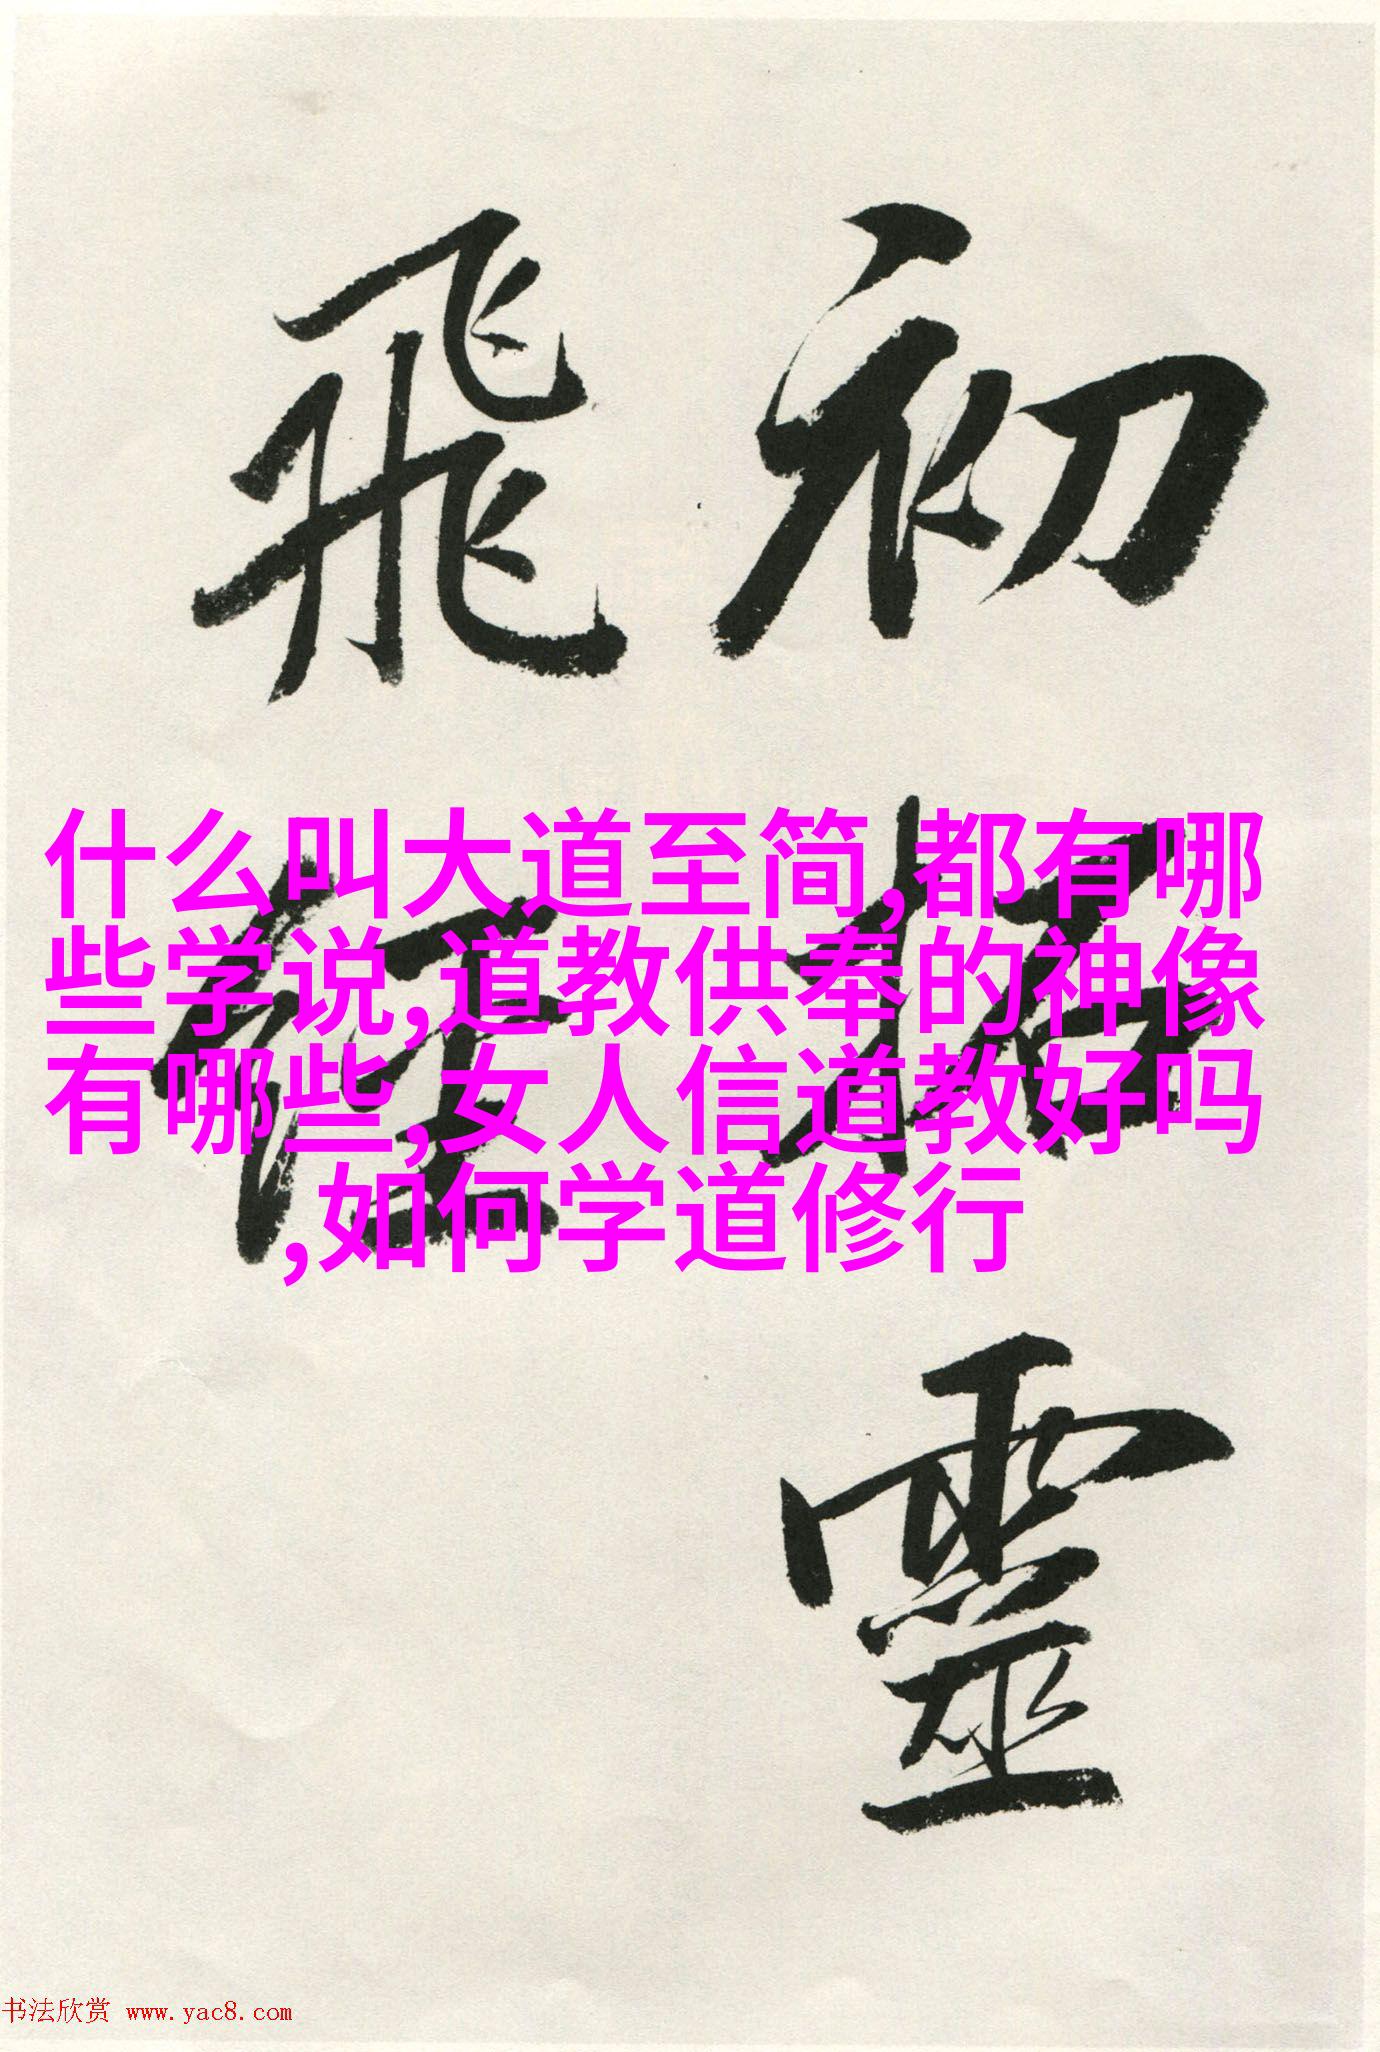 初拓靈
飛經
什么叫大道至简,都有哪
些学说,道教供奉的神像
有哪些,女人信道教好吗
,如何学道修行
书法欣赏 www.yac8.com